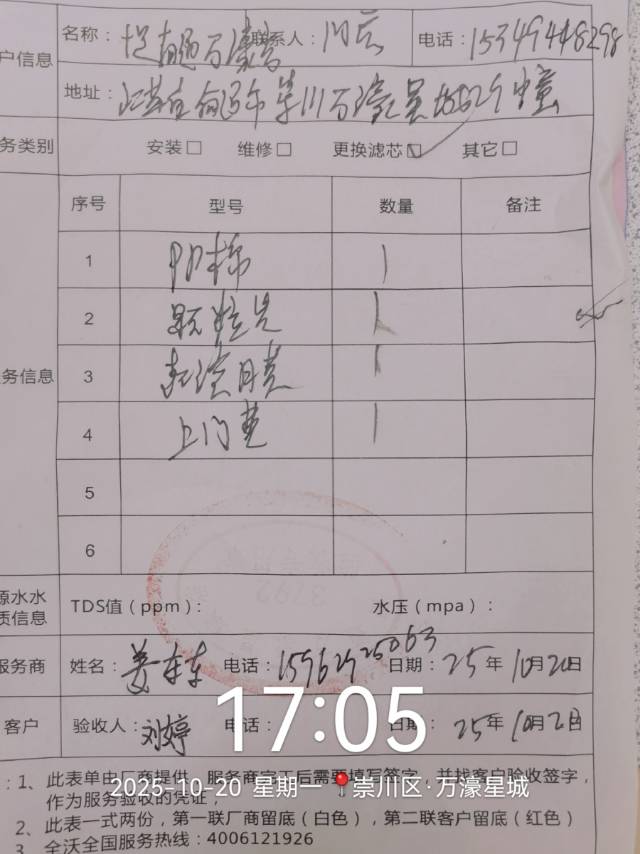 户信息
名称： 联系人： 电话：15349448298
地址：
务类别 安装□ 维修□ 更换滤芯□ 其它□
序号 型号 数量 备注
务信息
1 PP棉 1
2 颗粒炭 1
3 反渗透膜 1
4 上门费 1
5
6
源水水质信息 TDS值（ppm）： 水压（mpa）：
服务商 姓名：姜东东 电话： 日期：25年10月20日
客户 验收人：刘婷 电话： 日期：25年10月2日
17:05
2025-10-20 星期一 崇川区·万濠星城
：1、此表单由厂商提供，服务商完工后需要填写签字，并找客户验收签字，
作为服务验收的凭证；
2、此表一式两份，第一联厂商留底（白色），第二联客户留底（红色）
3、全沃全国服务热线：4006121926